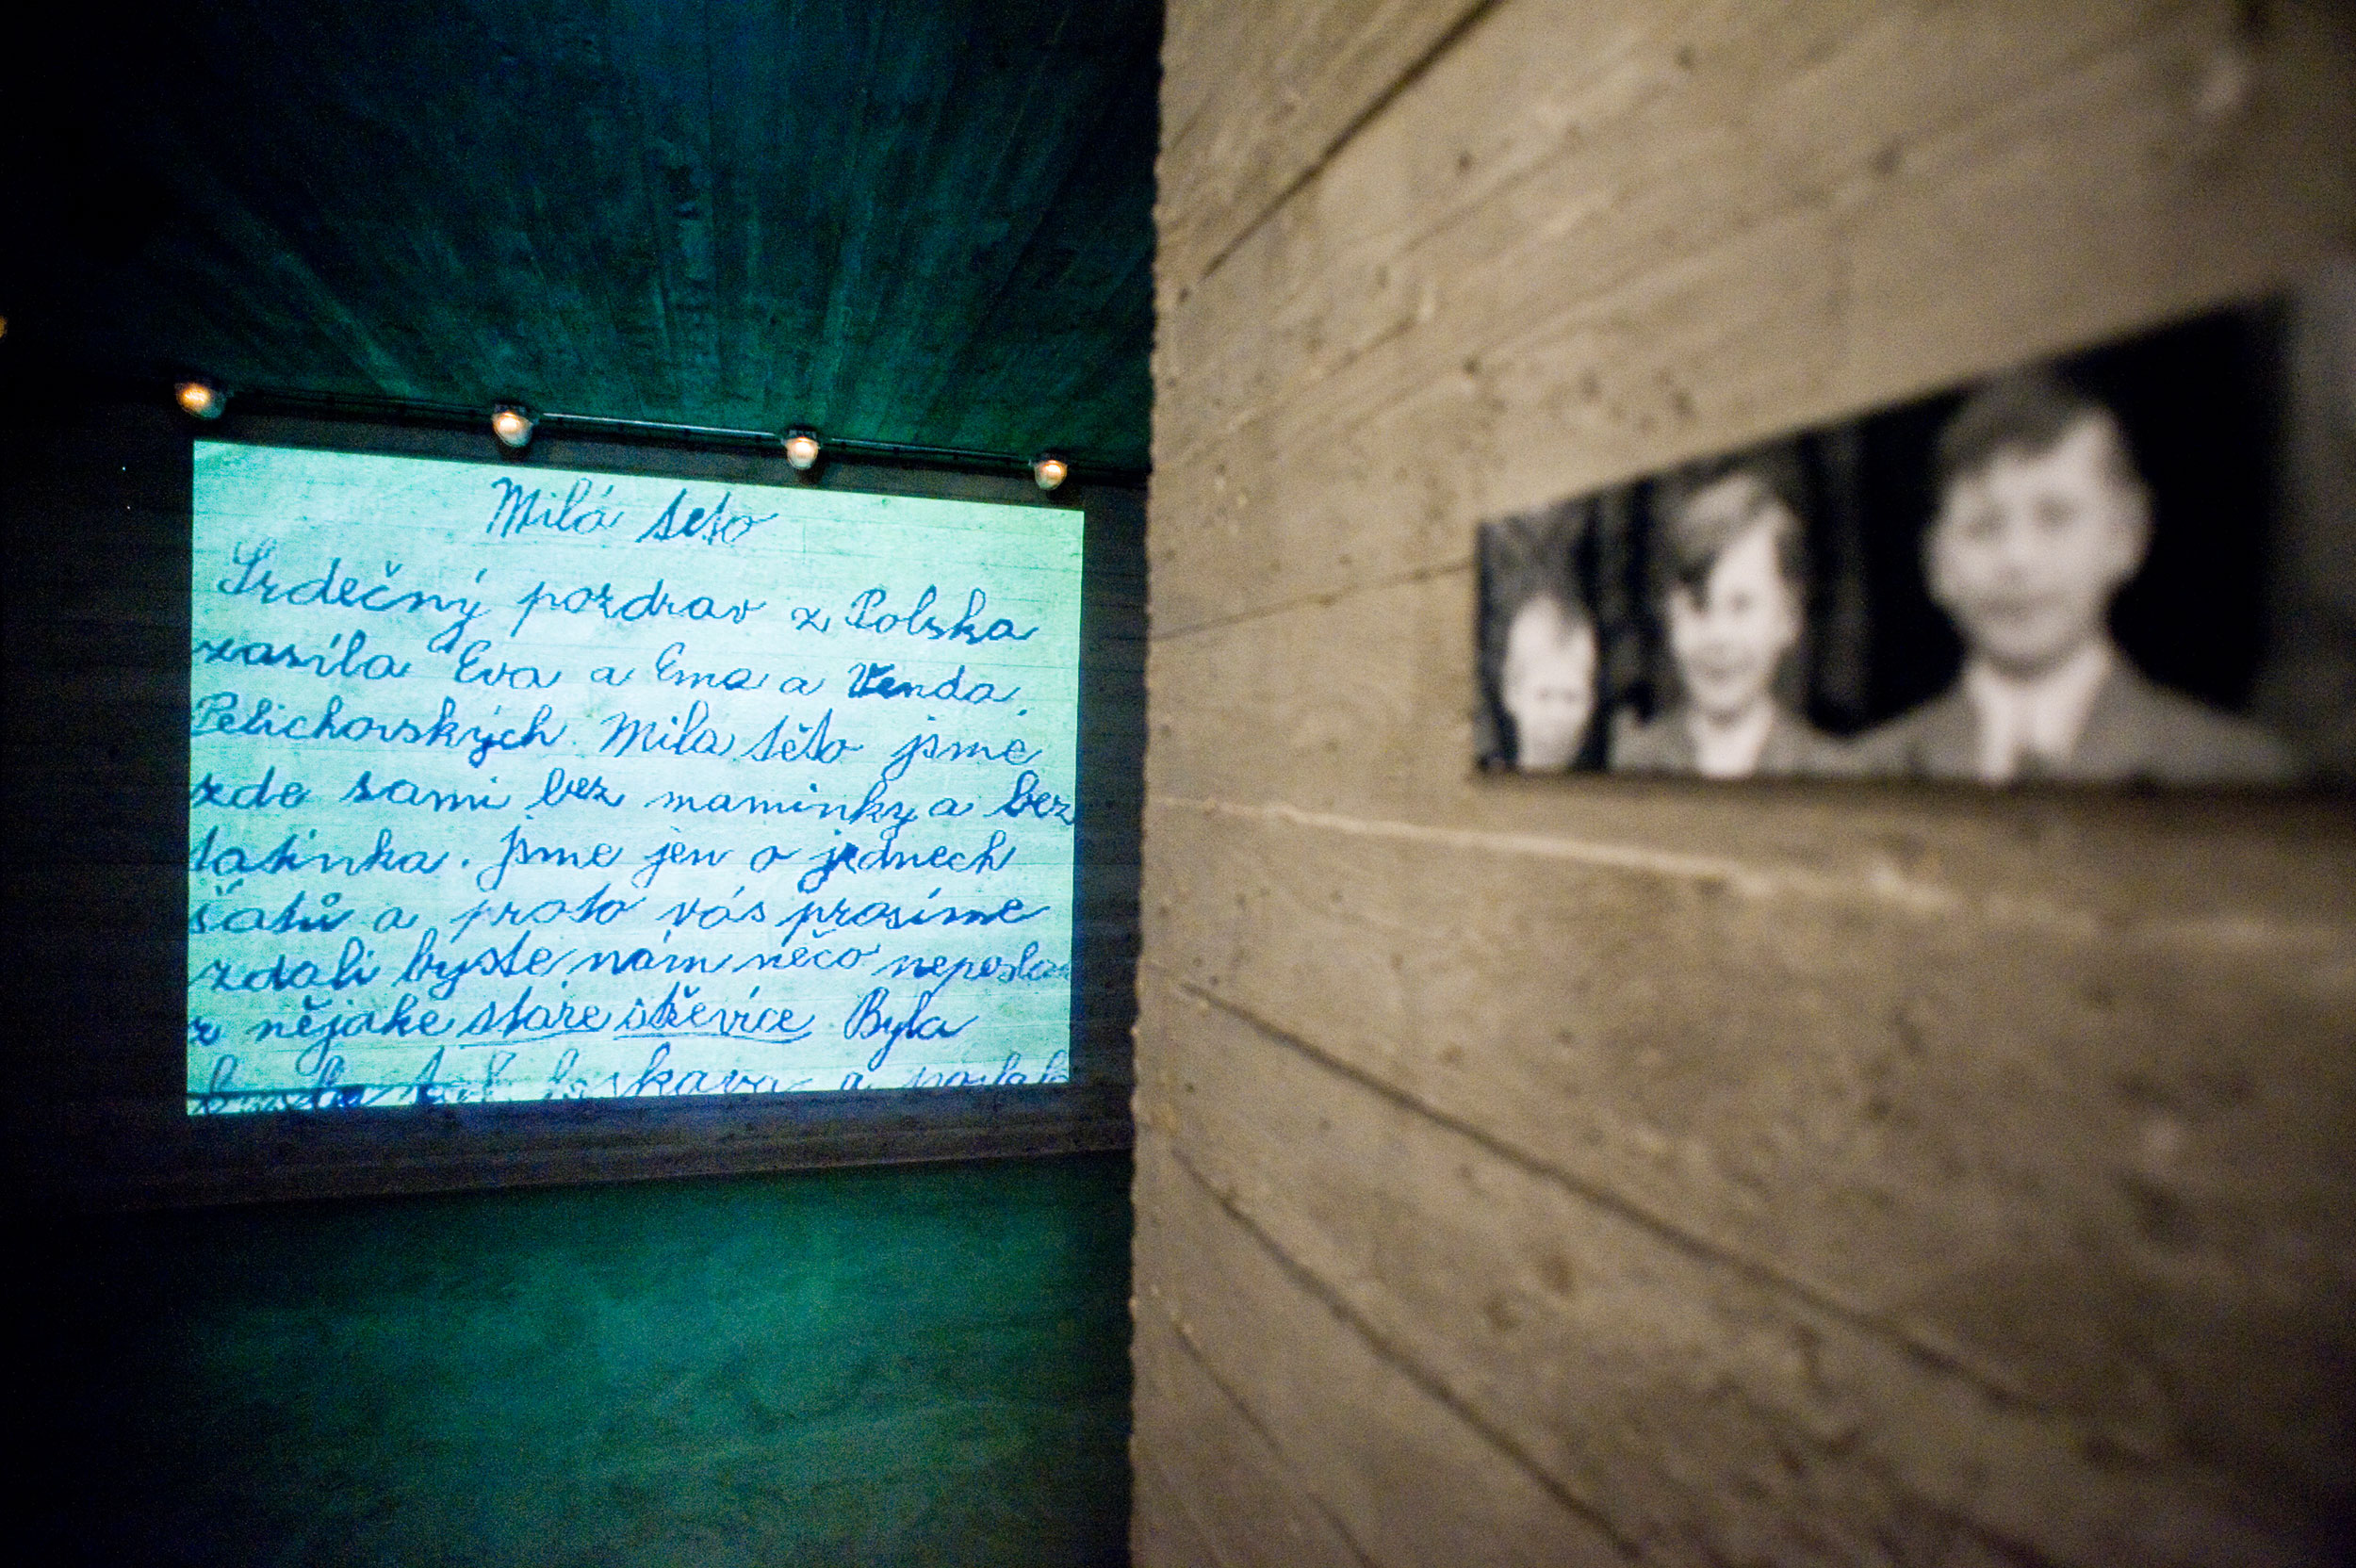 Milá teto
Srdečný pozdrav z Polska
zasíla Eva a Ema a Venda.
Pelichovských. Mila této jsme
zde sami bez maminky a bez
tatinka. jsme jen o jedněch
šatů a proto vás prosíme
zdali byste nám něco neposla
z nějake stáre střevíce Byla
laskava a